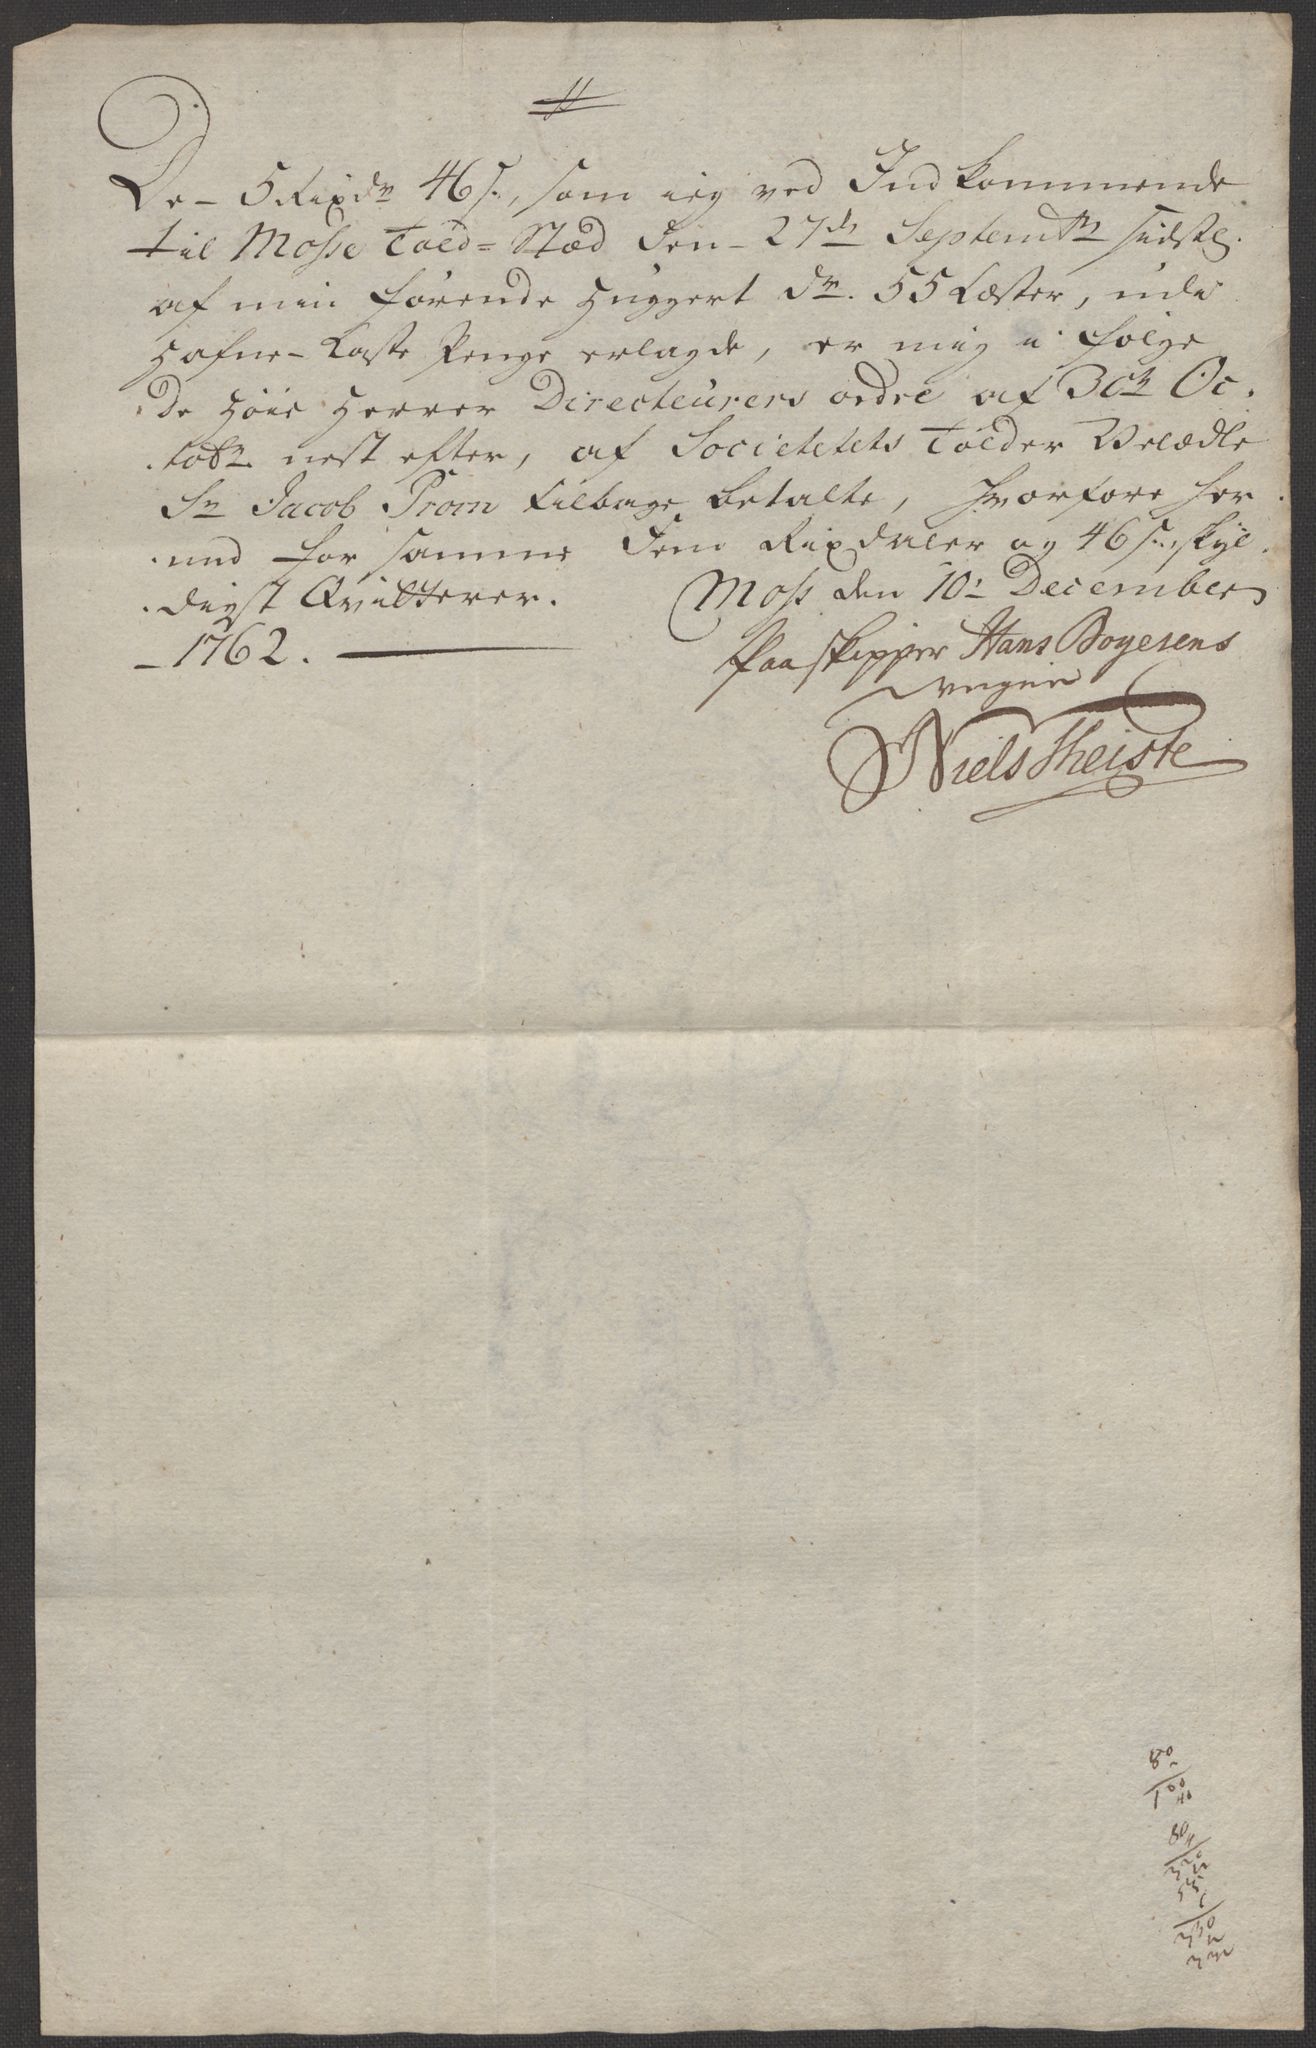 De - 5 Rixdr 46 s., som ieg ved Indkommende
til Mosse Told = Stæd den - 27de Septembr sidstl.
af min førende Huggert dr. 55 Læster, udi
Hafne - Laste Penge erlagde, er mig i følge
De Høie Herrer Directeurers ordre af 30te Oc-
tobr. nest efter, af Societetets Tolder Velædle
Sr Jacob Prom tilbage betalte, hvorfore her-
ved for samme Fem Rixdaler og 46 s. skyl-
digst Qvitterer. Moss den 10de December
- 1762.
Paa Skipper Hans Boyesens
vegne
Niels Theiste
80
100